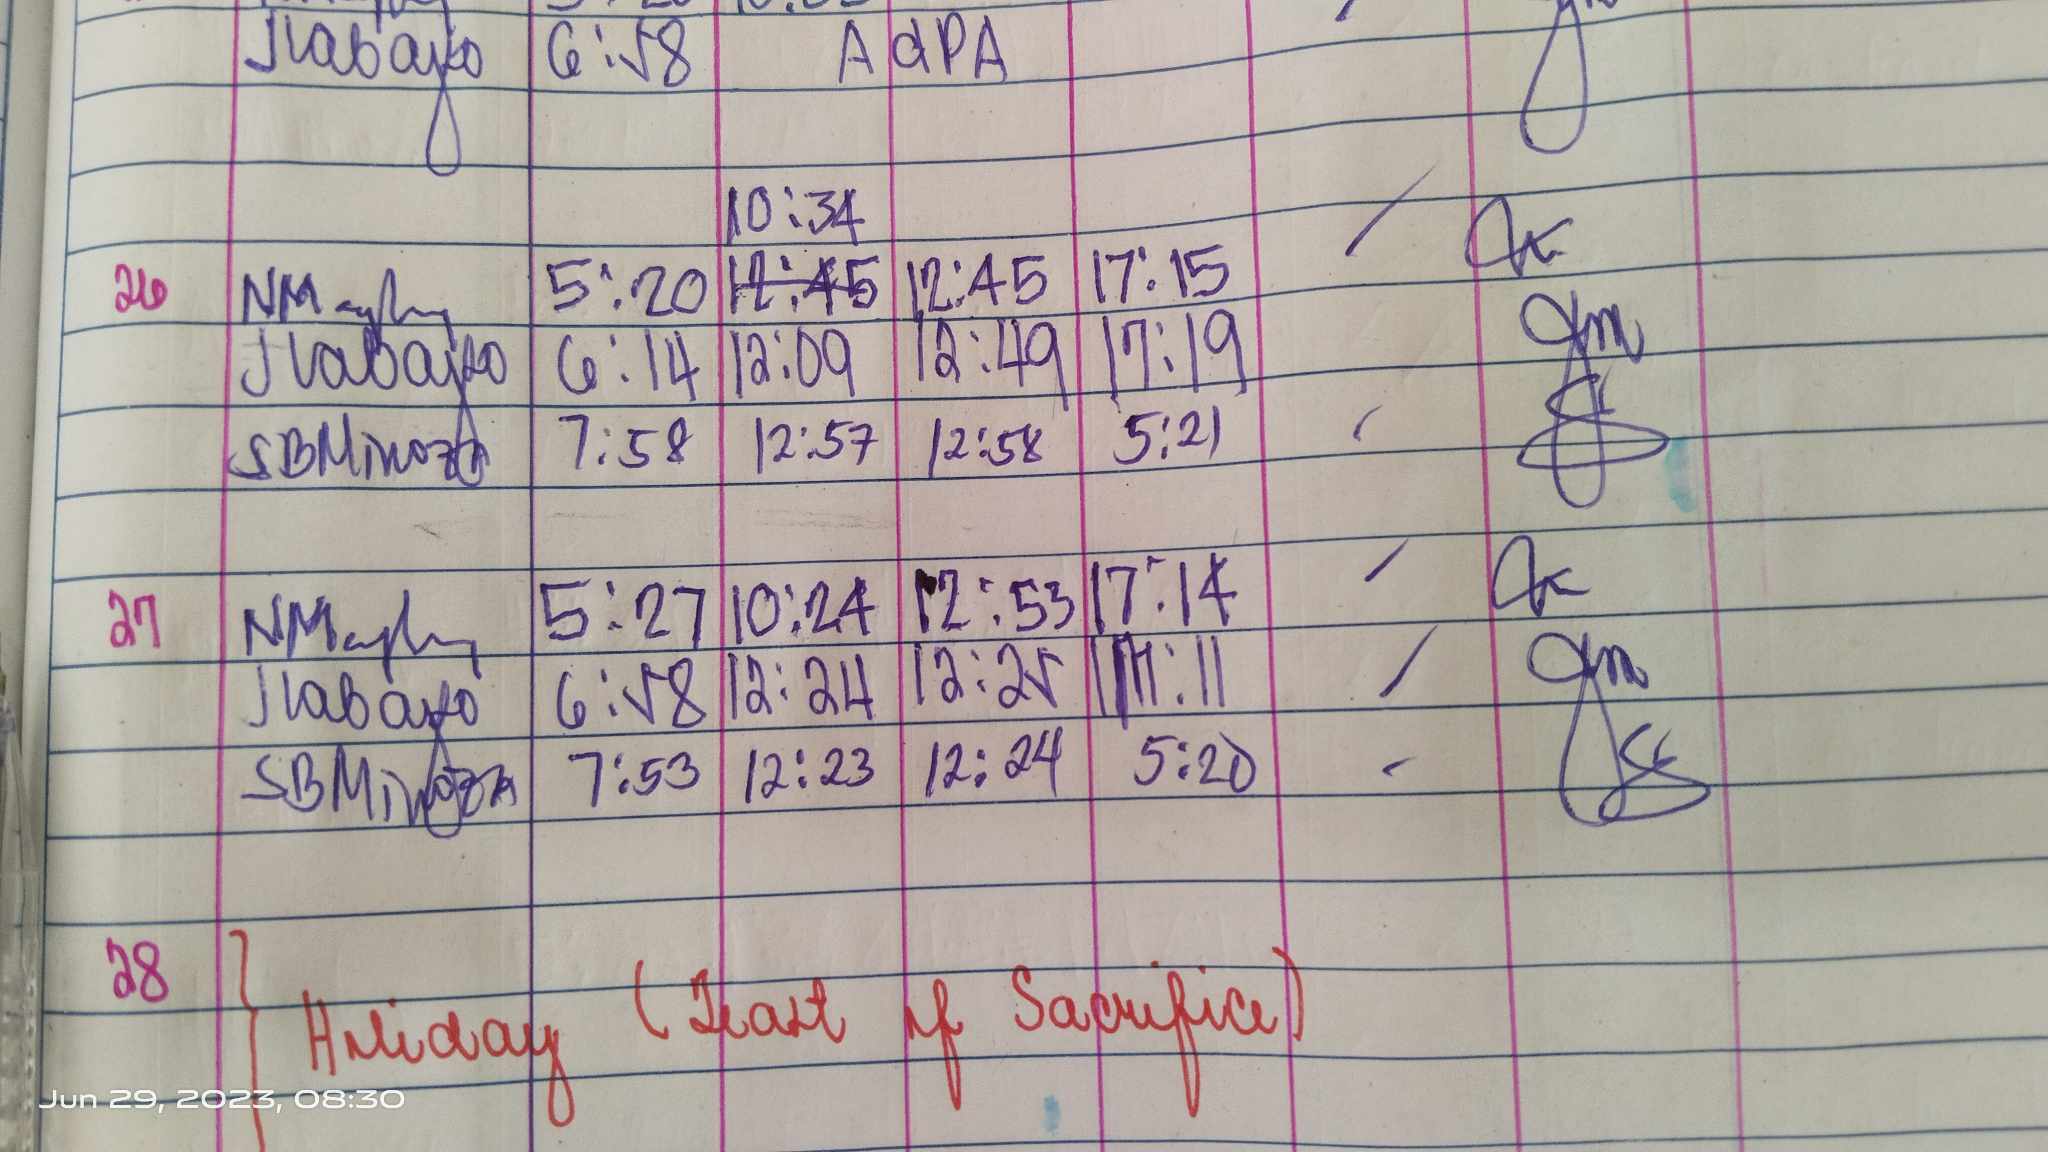 Jlabayo 6:58 A dPA
10:34
26 NMaghy 5:20 12:45 12:45 17:15
Jlabayo 6:14 12:09 12:49 17:19
SBMinoza 7:58 12:57 12:58 5:21
27 NMaghy 5:27 10:24 12:53 17:14
Jlabayo 6:58 12:24 12:25 17:11
SBMinoza 7:53 12:23 12:24 5:20
28 Holiday (Feast of Sacrifice)
Jun 29, 2023, 08:30